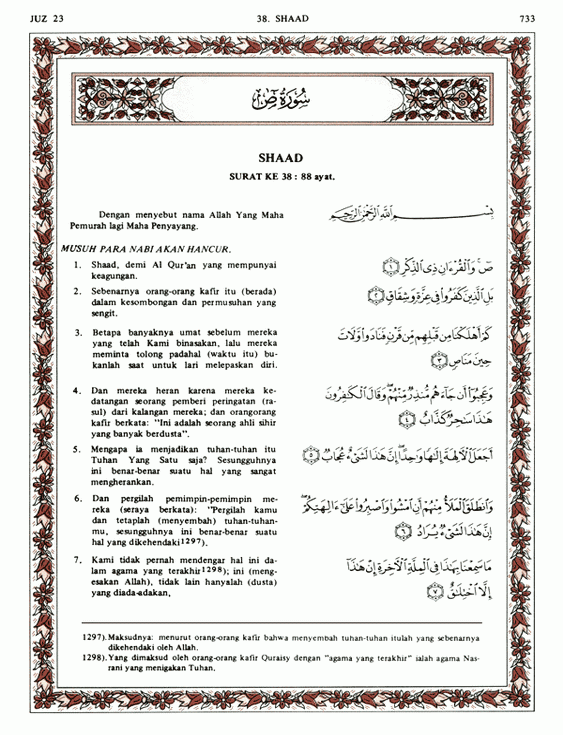 JUZ 23
38. SHAAD
733
سُورَةُ صٓ
SHAAD
SURAT KE 38 : 88 ayat.
Dengan menyebut nama Allah Yang Maha
Pemurah lagi Maha Penyayang.
بِسْمِ اللَّهِ الرَّحْمَٰنِ الرَّحِيمِ
MUSUH PARA NABI AKAN HANCUR.
1. Shaad, demi Al Qur'an yang mempunyai
keagungan.
صٓ ۚ وَالْقُرْءَانِ ذِي الذِّكْرِ ﴿١﴾
2. Sebenarnya orang-orang kafir itu (berada)
dalam kesombongan dan permusuhan yang
sengit.
بَلِ الَّذِينَ كَفَرُوا فِي عِزَّةٍ وَشِقَاقٍ ﴿٢﴾
3. Betapa banyaknya umat sebelum mereka
yang telah Kami binasakan, lalu mereka
meminta tolong padahal (waktu itu) bu-
kanlah saat untuk lari melepaskan diri.
كَمْ أَهْلَكْنَا مِن قَبْلِهِم مِّن قَرْنٍ فَنَادَوا وَّلَاتَ
حِينَ مَنَاصٍ ﴿٣﴾
4. Dan mereka heran karena mereka ke-
datangan seorang pemberi peringatan (ra-
sul) dari kalangan mereka; dan orangorang
kafir berkata: "Ini adalah seorang ahli sihir
yang banyak berdusta".
وَعَجِبُوا أَن جَاءَهُم مُّنذِرٌ مِّنْهُمْ ۖ وَقَالَ الْكَٰفِرُونَ
هَٰذَا سَٰحِرٌ كَذَّابٌ ﴿٤﴾
5. Mengapa ia menjadikan tuhan-tuhan itu
Tuhan Yang Satu saja? Sesungguhnya
ini benar-benar suatu hal yang sangat
mengherankan.
أَجَعَلَ الْآلِهَةَ إِلَٰهًا وَاحِدًا ۖ إِنَّ هَٰذَا لَشَيْءٌ عُجَابٌ ﴿٥﴾
6. Dan pergilah pemimpin-pemimpin me-
reka (seraya berkata): "Pergilah kamu
dan tetaplah (menyembah) tuhan-tuhan-
mu, sesungguhnya ini benar-benar suatu
hal yang dikehendaki1297).
وَانطَلَقَ الْمَلَأُ مِنْهُمْ أَنِ امْشُوا وَاصْبِرُوا عَلَىٰ ءَالِهَتِكُمْ ۖ
إِنَّ هَٰذَا لَشَيْءٌ يُرَادُ ﴿٦﴾
7. Kami tidak pernah mendengar hal ini da-
lam agama yang terakhir1298); ini (meng-
esakan Allah), tidak lain hanyalah (dusta)
yang diada-adakan,
مَا سَمِعْنَا بِهَٰذَا فِي الْمِلَّةِ الْآخِرَةِ إِنْ هَٰذَا
إِلَّا اخْتِلَٰقٌ ﴿٧﴾
1297). Maksudnya: menurut orang-orang kafir bahwa menyembah tuhan-tuhan itulah yang sebenarnya
dikehendaki oleh Allah.
1298). Yang dimaksud oleh orang-orang kafir Quraisy dengan "agama yang terakhir" ialah agama Nas-
rani yang menigakan Tuhan.